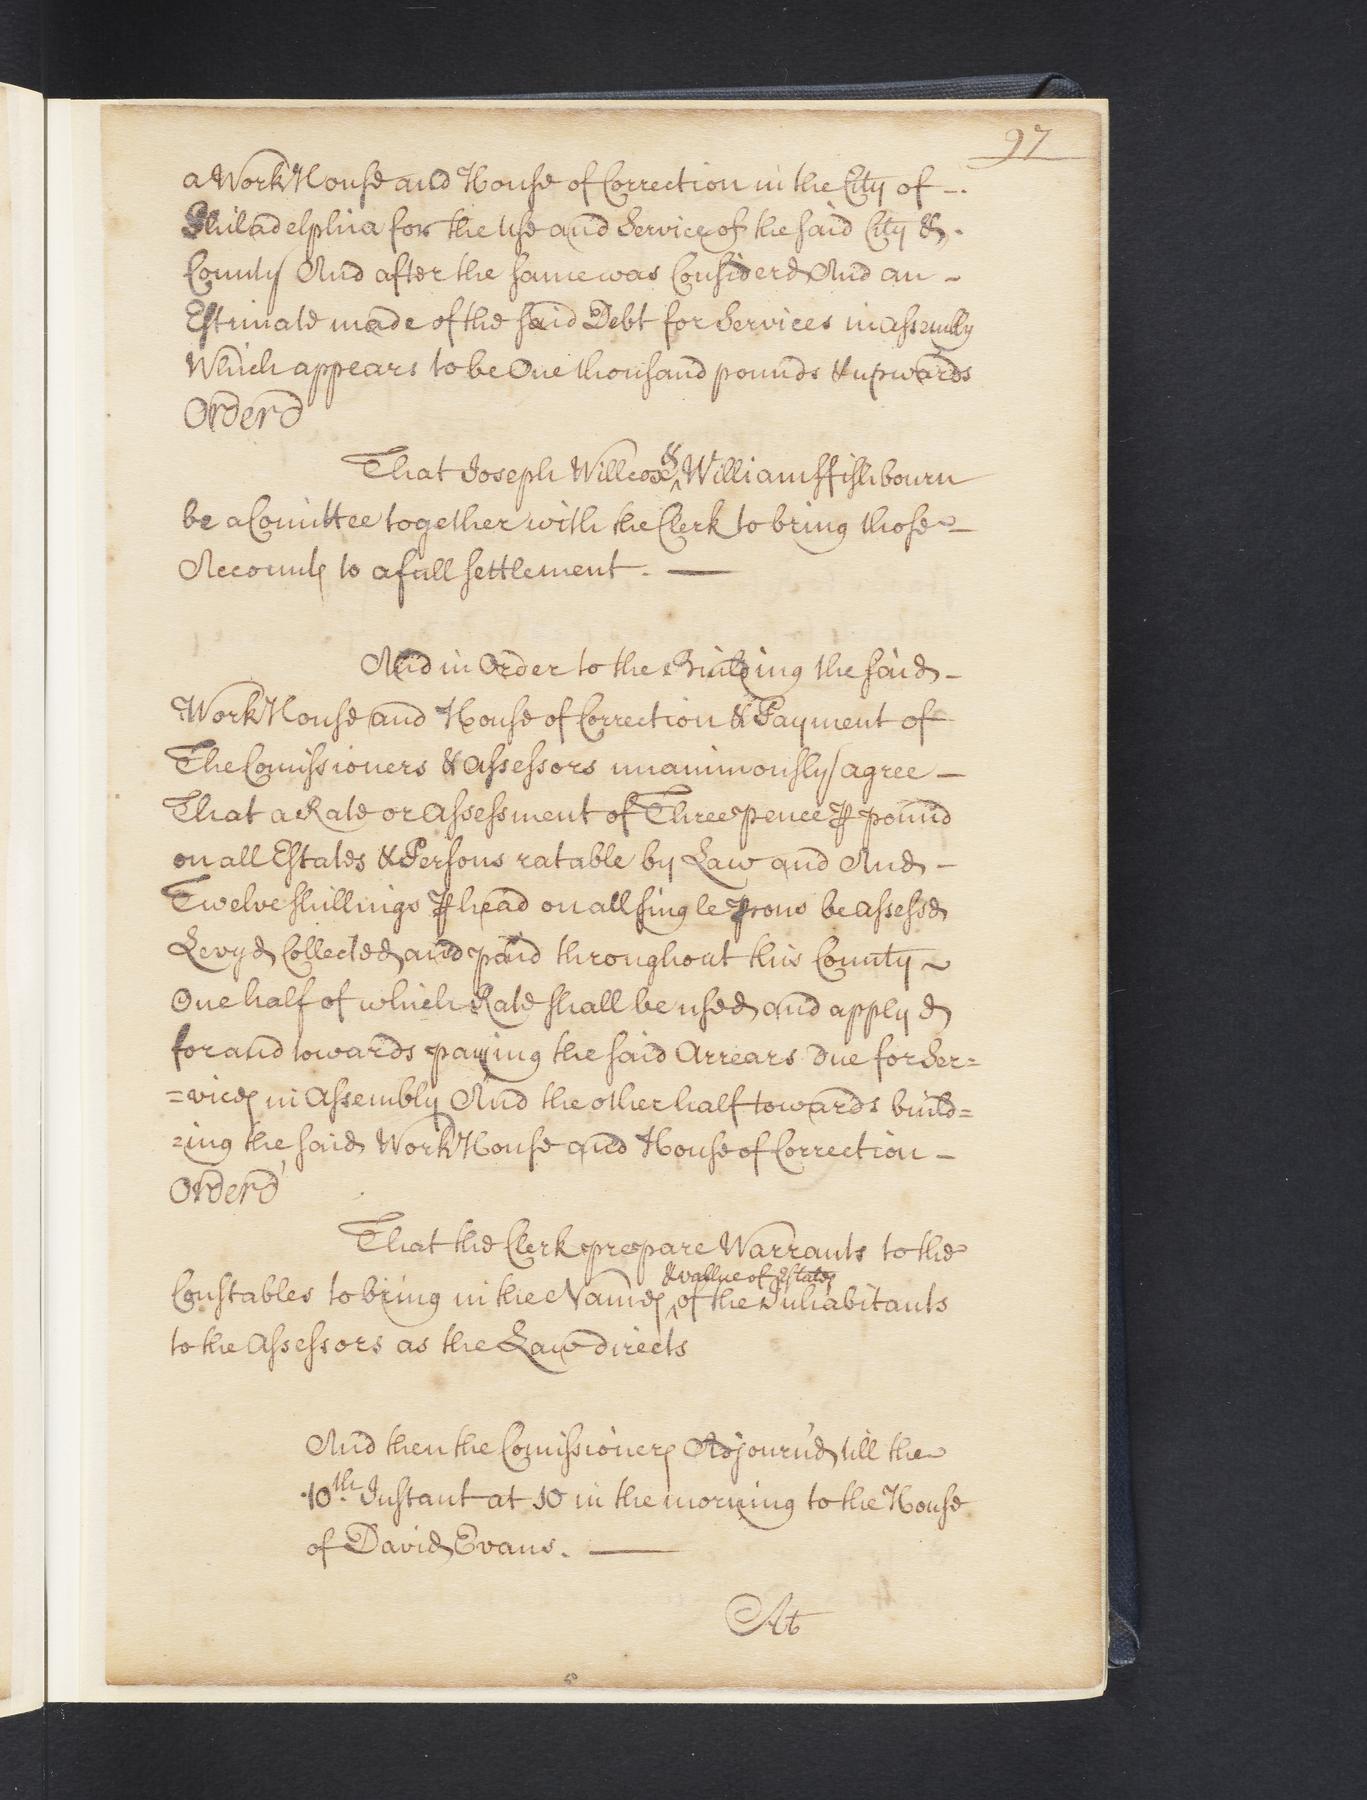 97
a Work House and House of Correction in the City of -.
Philadelphia for the Use and Service of the said City &.
County And after the same was Considerd And an -
Estimate made of the said Debt for Services in Assembly
Which appears to be One thousand pounds & upwards
Orderd
That Joseph Willcox & William ffishbourn
be a Comittee together with the Clerk to bring those -
Accounts to a full settlement. —
And in Order to the Building the said -
Work House and House of Correction & Payment of
The Comissioners & Assessors unanimously agree -
That a Rate or Assessment of Three pence ⅌ pound
on all Estates & Persons ratable by Law and And -
Twelve shillings ⅌ head on all single ꝑsons be assessd
Levyd Collected and paid throughout this County ~
One half of which Rate shall be used and applyd
for and towards paying the said Arrears due for Ser=
=vices in Assembly And the other half towards build=
=ing the said Work House and House of Correction -
Orderd'
That the Clerk prepare Warrants to the
& vallue of Estates
Constables to bring in the Names ‸ of the Inhabitants
to the Assessors as the Law directs
And then the Comissioners Adjournd till the
10th. Instant at 10 in the morning to the House
of David Evans. —
At